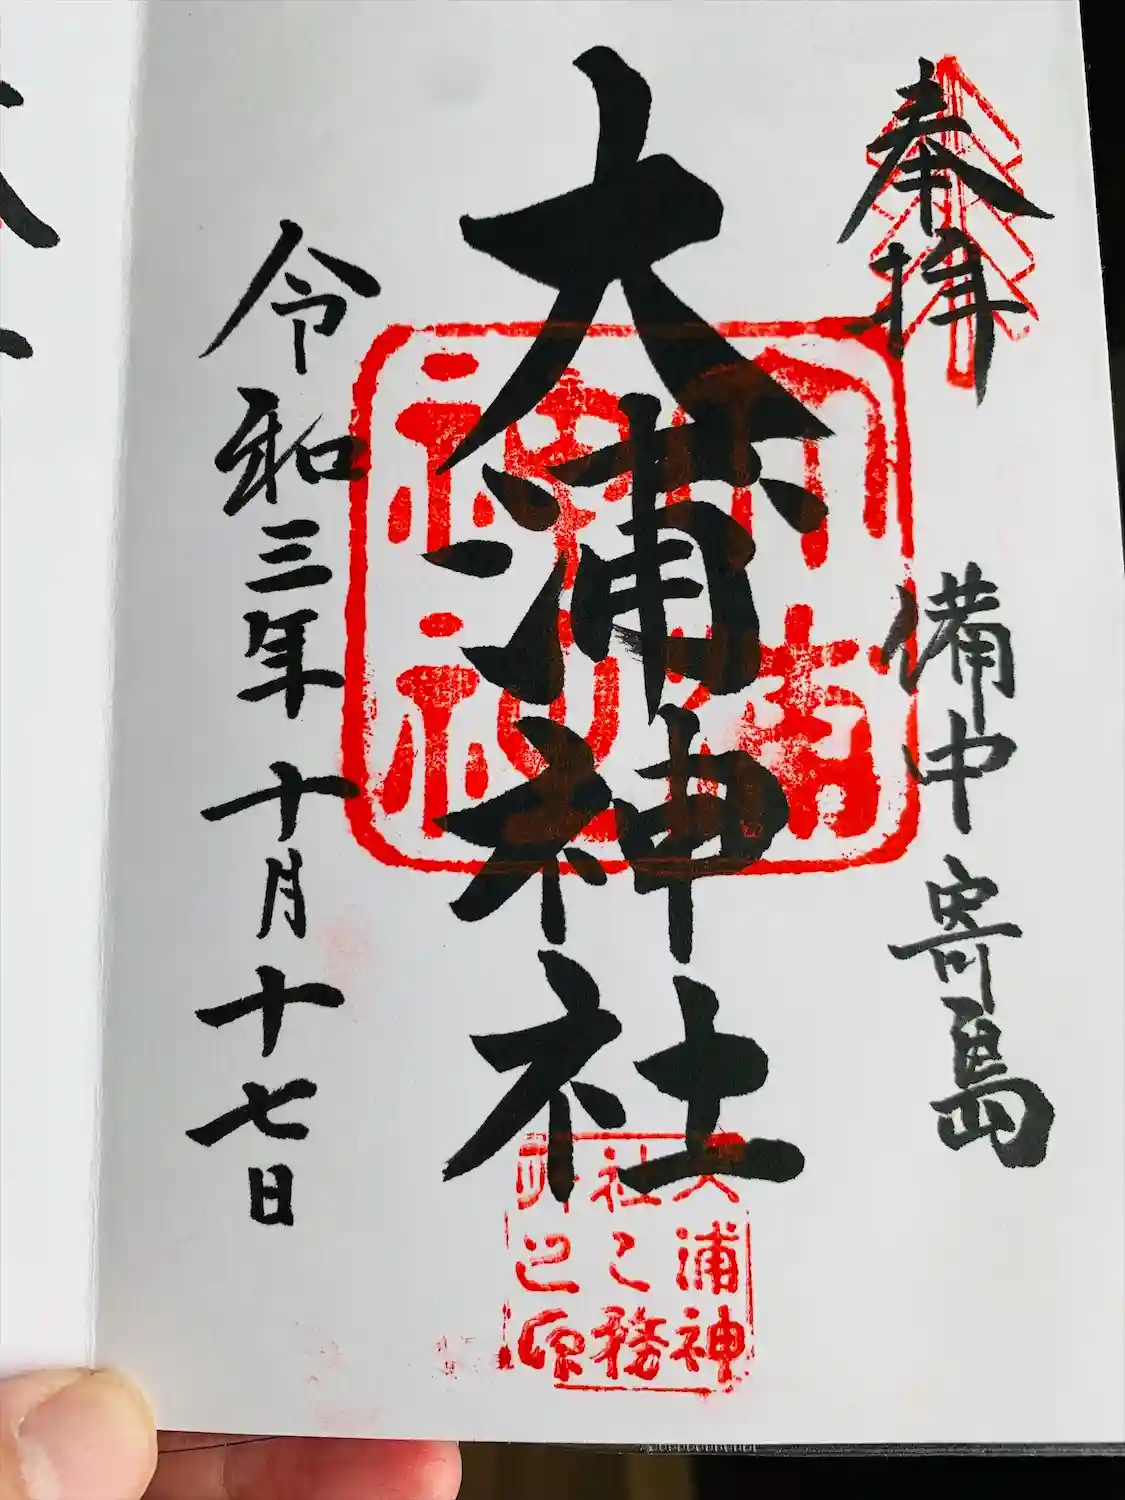 奉拝
備中寄島
大浦神社
令和三年十月十七日
大浦神
社
務